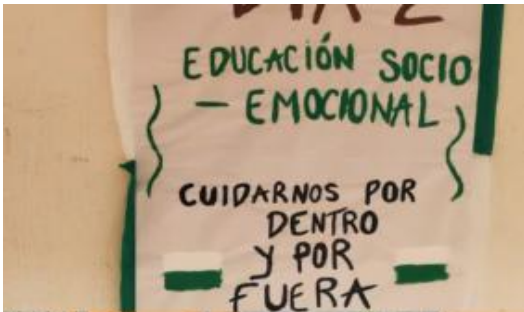 DÍA 2
EDUCACIÓN SOCIO
- EMOCIONAL
CUIDARNOS POR
DENTRO
Y POR
FUERA